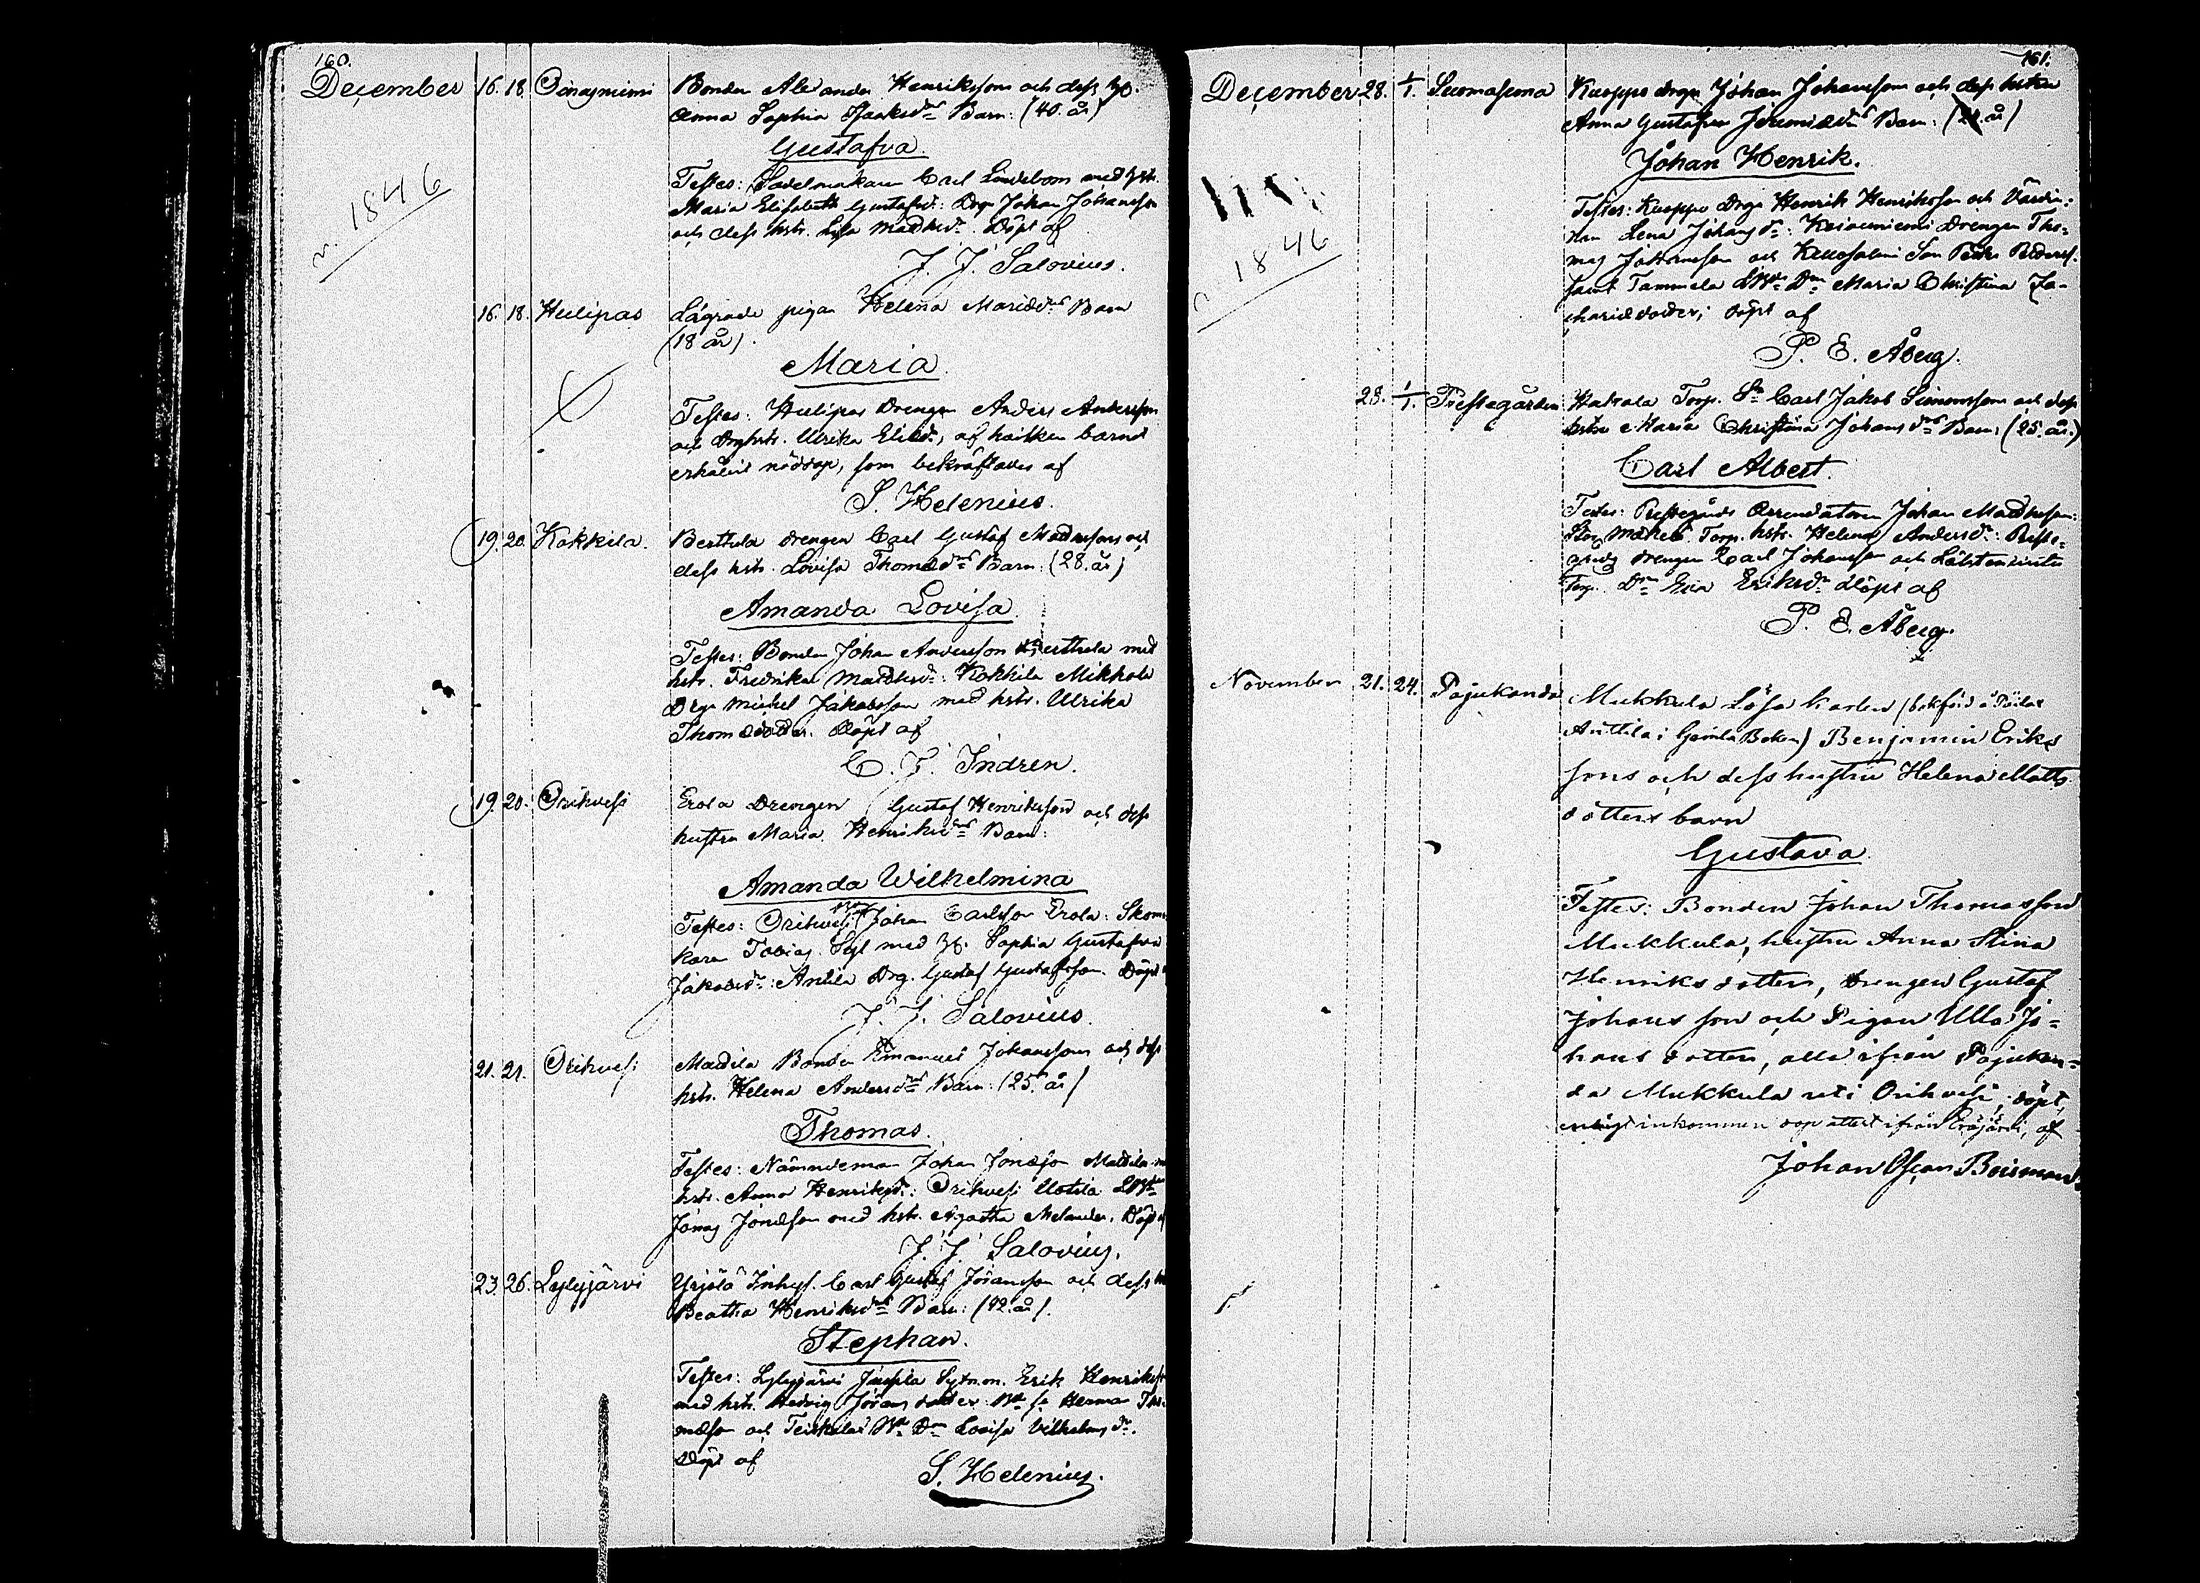 160.
December 16. 18.
Bonden Alexander Henrikssons och dess
Anna Sophia Isaksdrs Barn: (40. år)
Gustafva.
v. 1846
Testes: Sadelmakaren Carl Lindebom med hstr.
Maria Elisabeth Gustafsdr: Drgn Johan Johansson
och dess hstr. Lisa Madhsdr. Döpt af
J. J. Salovius.
16. 18. Hulipas Lägrade pigan Helena Mariædrs Barn
(18 år).
Maria.
Testes: Hulipas Drengen Anders Andersson
och Drghstr. Ulrika Eliædr, af hvilken barnet
erhållit nöddop, som bekräftades af
S. Helenius.
19. 20. Kokkila. Berttula drengen Carl Gustaf Madhssons och
dess hstr. Lovisa Thomædrs Barn: (28. år)
Amanda Lovisa
Testes: Bonden Johan Andersson Berttula med
hstr. Fredrika Madhsdr: Kokkila Mikkola
Drgn Michel Jakobsson med hstr. Ulrika
Thomædotter. Döpt af
C. F. Indren.
19. 20. Orihvesi Erola Drengen Gustaf Henrikssons och dess
hustru Maria Henriksdrs Barn:
Amanda Wilhelmina
Testes: Orihvesi Johan Carlsson Erola: Skoma
karen Tobias Syl med Sophia Gustafva
Jakobsdr: Anttila Drg. Gustaf Gustafsson. Döpt
J. J. Salovius.
21. 21. Orihvesi Mattila Bonden Emanuel Johanssons och dess
hstr. Helena Andersdrs Barn: (25. år)
Thomas.
Testes: Nämndeman Johan Jonæson Mattila
hstr. Anna Henriksdr: Orihvesi Uotila
Jonas Jonæson med hstr. Agatha Melander. Döpt
J. J. Salovius.
23. 26. Lylyjärvi Yrjölä Inhys. Carl Gustaf Jöransson och dess
Beatha Henriksdrs Barn: (42. år).
Stephan.
Testes: Lylyjärvi Juupla Sytnm. Erik Henriksson
med hstr. Hedvig Jöransdotter: Herman Tho
mæson och Teiskola Lovisa Vilhelmsdr.
Döpt af
S. Helenius.
161.
December 28. 1/1. Suomasema Kuoppa drgn Johan Johanssons och dess hustru
Anna Gustafva Jeremiædrs Barn: (24. år)
Johan Henrik.
v. 1846
Testes: Kuoppa Drgn Henrik Henriksson och Värdin-
nan Lena Johansdr: Keisveniemi Drengen Tho-
mas Johansson och
samt Tammela Maria Christina Za-
chariædotter; döpt af
P. E. Åberg.
28. 1/1. Prestegården Hakala Torp. Sn Carl Jakob Simonssons och dess
hstru Maria Christina Johansdrs Barn: (25. år.)
Carl Albert.
Testes: Prestgårds Arrendatoren Johan Madhsson:
Torp. hstr. Helena Andersdr: Prest-
gårds drengen Carl Johansson och
Torp. Dn Eva Eriksdr döpt af
P. E. Åberg.
November 21. 24. Pajukanda Mukkula Lösa karlen (bokförd å
Anttila i Gamla Boken) Benjamin Eriks
sons och dess hustru Helena Matts
dotters barn
Gustava
Testes: Bonden Johan Thomasson
Mukkula, hustru Anna Stina
Henriksdotter, Drengen Gustaf
Johansson och Pigan Ulla Jo-
hansdotter, alla ifrån Pajukan-
da Mukkula uti Orihvesi; döpt,
enligt inkommen dop attest ifrån Eräjärvi, af
Johan Oscar Boisman